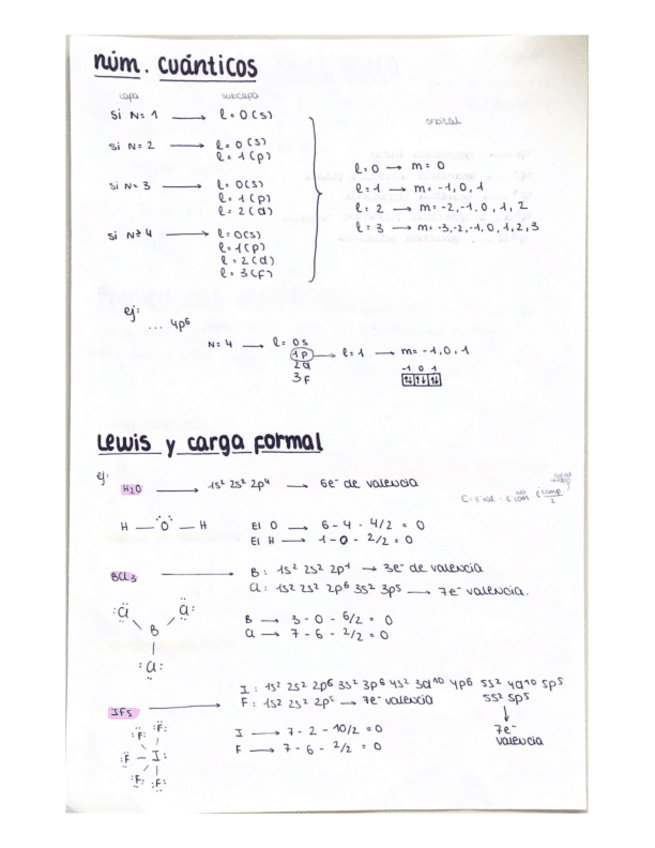 núm. cuánticos
capa subcapa
Si N= 1 → l= 0(s)
orbital
si N= 2 → l= 0(s)
l= 1(p)
l=0 → m= 0
si N= 3 → l= 0(s)
l= 1(p)
l= 2(d)
l=1 → m= -1, 0, 1
l= 2 → m= -2, -1, 0, 1, 2
l= 3 → m= -3, -2, -1, 0, 1, 2, 3
si N≥ 4 → l= 0(s)
l= 1(p)
l= 2(d)
l= 3(f)
ej:
... 4p6
N= 4 → l= 0s
1p → l= 1 → m= -1, 0, 1
2d
3f
-1 0 1
↑↓ ↑↓ ↑↓
Lewis y carga formal
ej:
H2O → 1s2 2s2 2p4 → 6e- de valencia
H — O — H
El O → 6 - 4 - 4/2 = 0
El H → 1 - 0 - 2/2 = 0
BCl3 → B: 1s2 2s2 2p1 → 3e- de valencia
Cl: 1s2 2s2 2p6 3s2 3p5 → 7e- valencia.
Cl Cl
B
Cl
B → 3 - 0 - 6/2 = 0
Cl → 7 - 6 - 2/2 = 0
I: 1s2 2s2 2p6 3s2 3p6 4s2 3d10 4p6 5s2 4d10 5p5
IF5 → F: 1s2 2s2 2p5 → 7e- valencia
5s2 5p5
↓
7e-
valencia
F F
F — I
F F
I → 7 - 2 - 10/2 = 0
F → 7 - 6 - 2/2 = 0